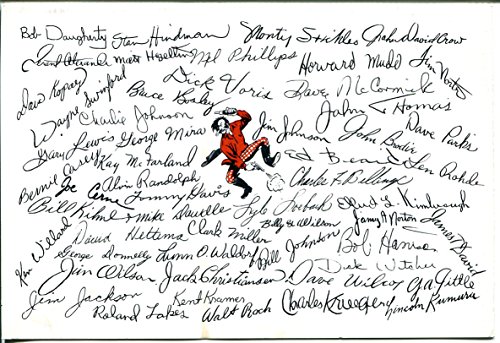 Bob Daugherty Stan Hindman Monty Stickles John David Crow
Matt Hazeltine Neil Phillips Howard Mudd Jim Norton
Dave Kopay Wayne Swinford Dick Voris Dave McCormick
Bruce Bosley John Thomas Dave Parks
Charlie Johnson Jim Johnson John Brodie
Gary Lewis George Mira Ed Beard Len Rohde
Bernie Casey Kay McFarland
Joe Cerne Alvin Randolph Charles F. Dellinger
Tommy Davis Elbert L. Kimbrough
Bill Kilmer Mike Dowdle Billy G. Wilson Jimmy A. Norton
Ken Willard David Hettema Clark Miller Bill Johnson Bob Harrison James David
George Donnelly Lynn O. Waldorf Dick Witcher
Jim Wilson Jack Christiansen Dave Wilcox Y.A. Tittle
Jim Jackson Kent Kramer Charles Krueger Lincoln Kimura
Roland Lakes Walt Rock